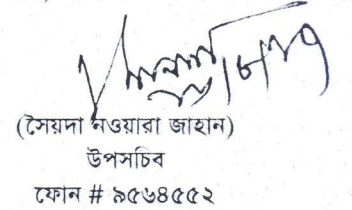 (সৈয়দা নওয়ারা জাহান)
উপসচিব
ফোন # ৯৫৬৪৫৫২